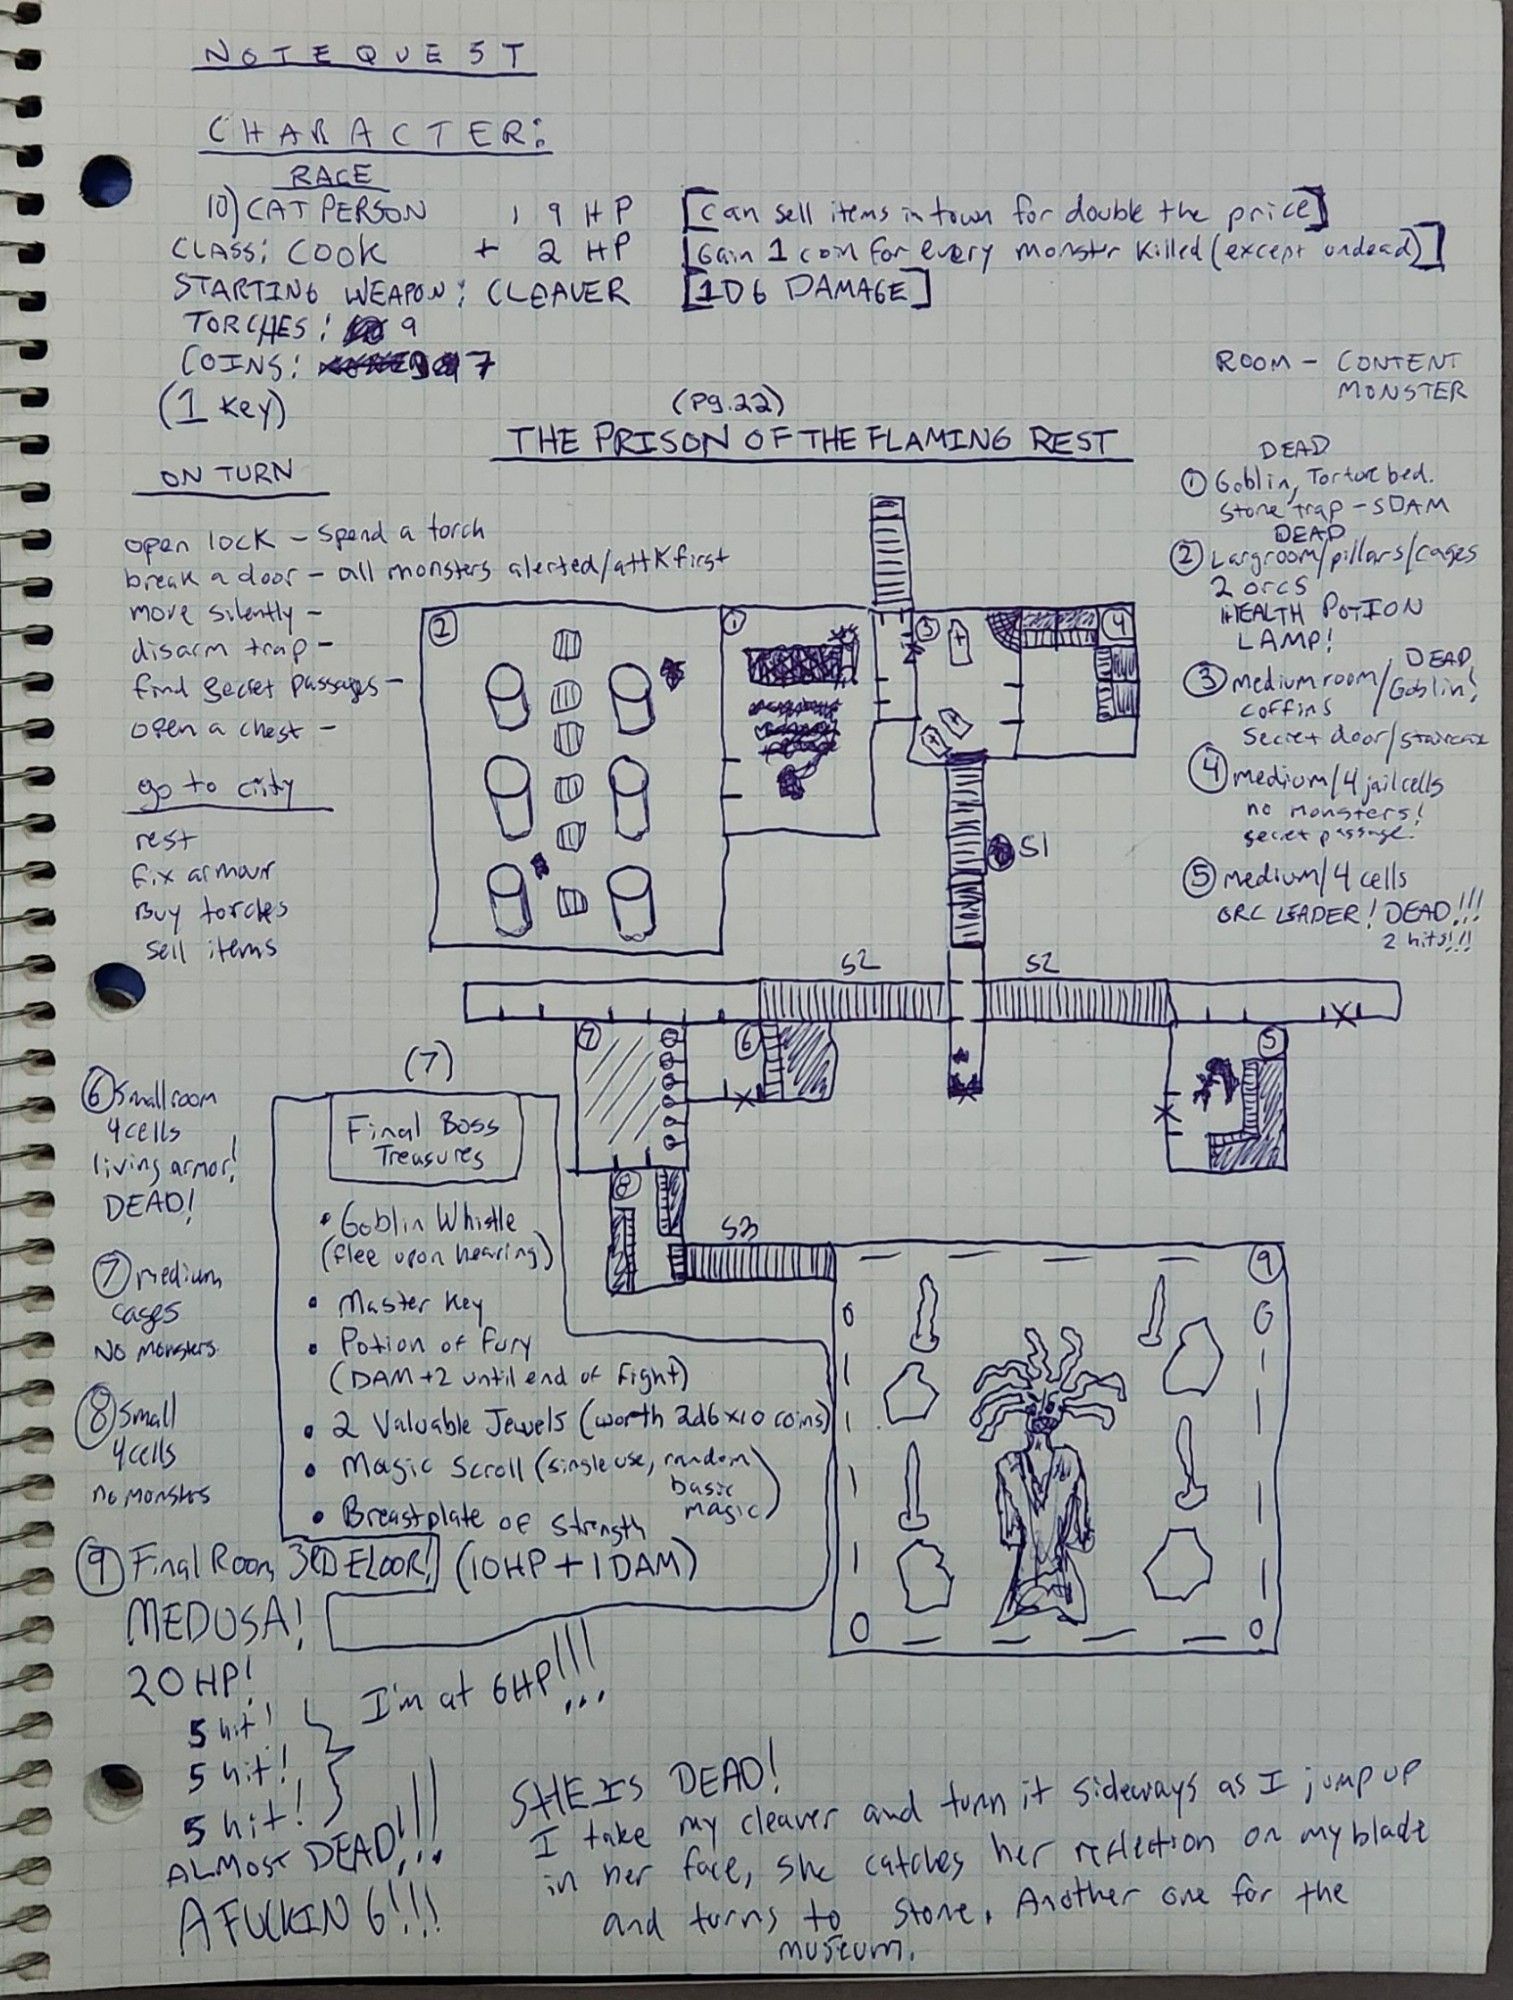 NOTEQUEST
CHARACTER:
RACE
10) CAT PERSON , 9 HP [can sell items in town for double the price]
CLASS: COOK + 2 HP [Gain 1 coin for every monster killed (except undead)]
STARTING WEAPON: CLEAVER [1D6 DAMAGE]
TORCHES: 9
COINS: 7
(1 key)
ROOM - CONTENT
MONSTER
(Pg.22)
THE PRISON OF THE FLAMING REST
ON TURN
open lock - spend a torch
break a door - all monsters alerted/attk first
move silently -
disarm trap -
find secret passages -
open a chest -
go to city
rest
fix armour
Buy torches
sell items
DEAD
① Goblin, Torture bed.
Stone trap - 5DAM
DEAD
② Largroom/pillars/cages
2 orcs
HEALTH POTION
LAMP!
③ medium room/ DEAD
Goblin!
coffins
secret door/staircase
④ medium/4 jail cells
no monsters!
secret passage!
⑤ medium/4 cells
ORC LEADER! DEAD!!!
2 hits!!!
②
①
③
④
S1
S2
S2
⑦
⑥
⑤
⑧
S3
⑨
⑥ Small room
4 cells
living armor!
DEAD!
⑦ medium
cages
No monsters.
⑧ Small
4 cells
no monsters
(7)
Final Boss
Treasures
• Goblin Whistle
(flee upon hearing)
• Master Key
• Potion of Fury
(DAM +2 until end of fight)
• 2 Valuable Jewels (worth 2d6x10 coins)
• Magic Scroll (single use, random
basic
magic)
• Breastplate of Strength
(10HP + 1 DAM)
⑨ Final Room, 3RD FLOOR!
MEDUSA!
20 HP!
5 hit!
5 hit!
5 hit!
I'm at 6HP!!!...
ALMOST DEAD!!!...
A FUCKIN 6!!!
SHE IS DEAD!
I take my cleaver and turn it sideways as I jump up
in her face, she catches her reflection on my blade
and turns to stone. Another one for the
museum.